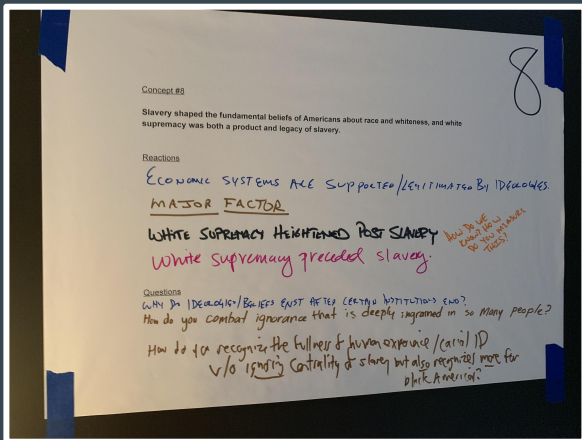 8
Concept #8
Slavery shaped the fundamental beliefs of Americans about race and whiteness, and white
supremacy was both a product and legacy of slavery.
Reactions
ECONOMIC SYSTEMS ARE SUPPORTED/LEGITIMATED BY IDEOLOGIES.
MAJOR FACTOR
WHITE SUPREMACY HEIGHTENED POST SLAVERY
HOW DO WE
KNOW? HOW
DO YOU MEASURE
THIS?
White supremacy preceded slavery.
Questions
WHY DO IDEOLOGIES/BELIEFS EXIST AFTER CERTAIN INSTITUTIONS END?
How do you combat ignorance that is deeply ingrained in so many people?
How do you recognize the fullness of human experience/racial ID
w/o ignoring centrality of slavery but also recognizes more for
black America?